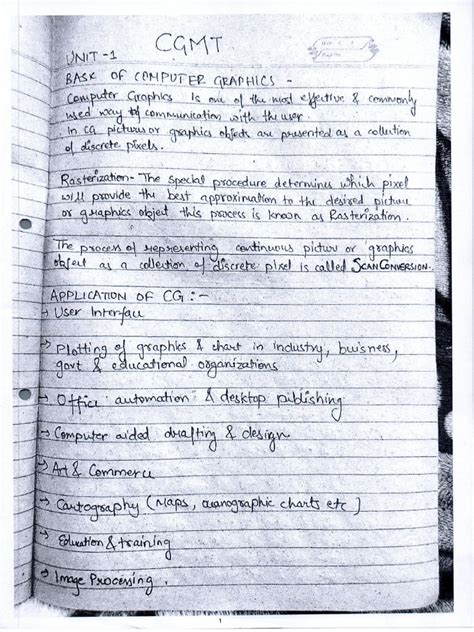 CGMT
UNIT-1
BASIC OF COMPUTER GRAPHICS -
Computer Graphics is one of the most effective & commonly
used way of communication with the user.
In CG pictures or graphics objects are presented as a collection
of discrete pixels.
Rasterization- The special procedure determines which pixel
will provide the best approximation to the desired picture
or graphics object this process is known as Rasterization.
The process of representing continuous picture or graphics
object as a collection of discrete pixel is called SCAN CONVERSION-.
APPLICATION OF CG :-
→ User Interface
→ Plotting of graphics & chart in industry, buisness,
govt & educational organizations
→ Office automation & desktop publishing
→ Computer aided drafting & design
→ Art & Commerce
→ Cartography (Maps, oceanographic charts etc)
→ Education & training
→ Image Processing.
1